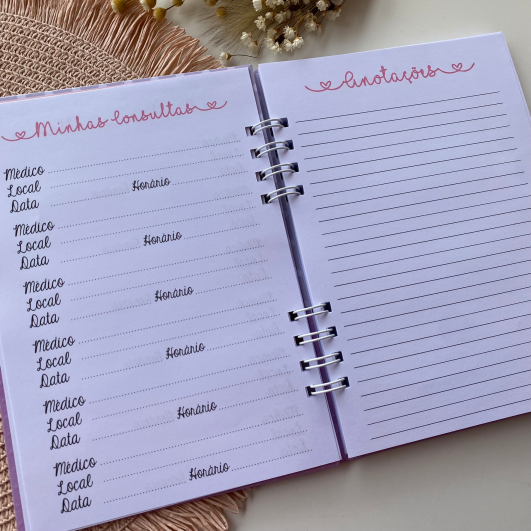 Minhas Consultas
Médico
Local
Data Horário
Médico
Local
Data Horário
Médico
Local
Data Horário
Médico
Local
Data Horário
Médico
Local
Data Horário
Médico
Local
Data Horário
Anotações